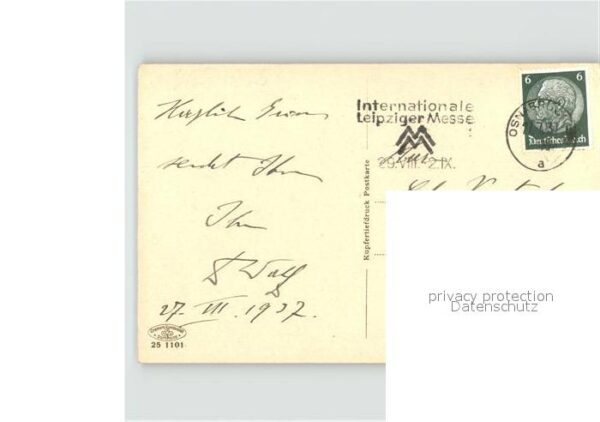 Herzlich Grüsse
sendet Ihnen
Ihr
Wolf
27. VII. 1937.
25 1101
Kupfertiefdruck Postkarte
Internationale
Leipziger Messe
MM
29.VIII. 2.IX.
6 6
Deutsches Reich
a
privacy protection
Datenschutz